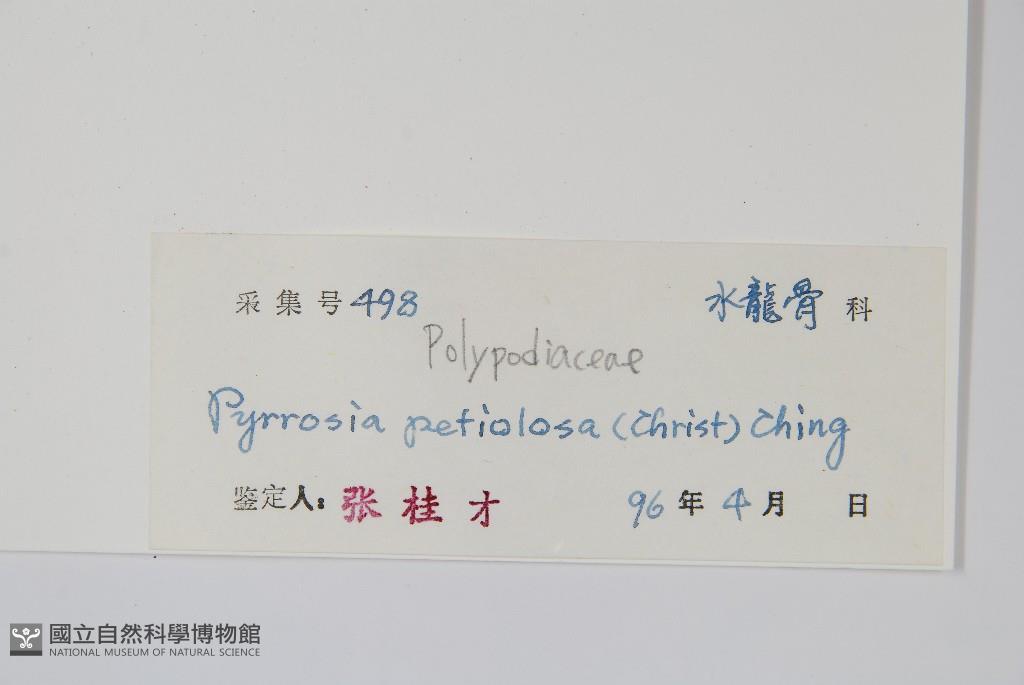 采集号 498 水龍骨 科
Polypodiaceae
Pyrrosia petiolosa (Christ) Ching
鉴定人: 张桂才 96 年 4 月 日
國立自然科學博物館
NATIONAL MUSEUM OF NATURAL SCIENCE